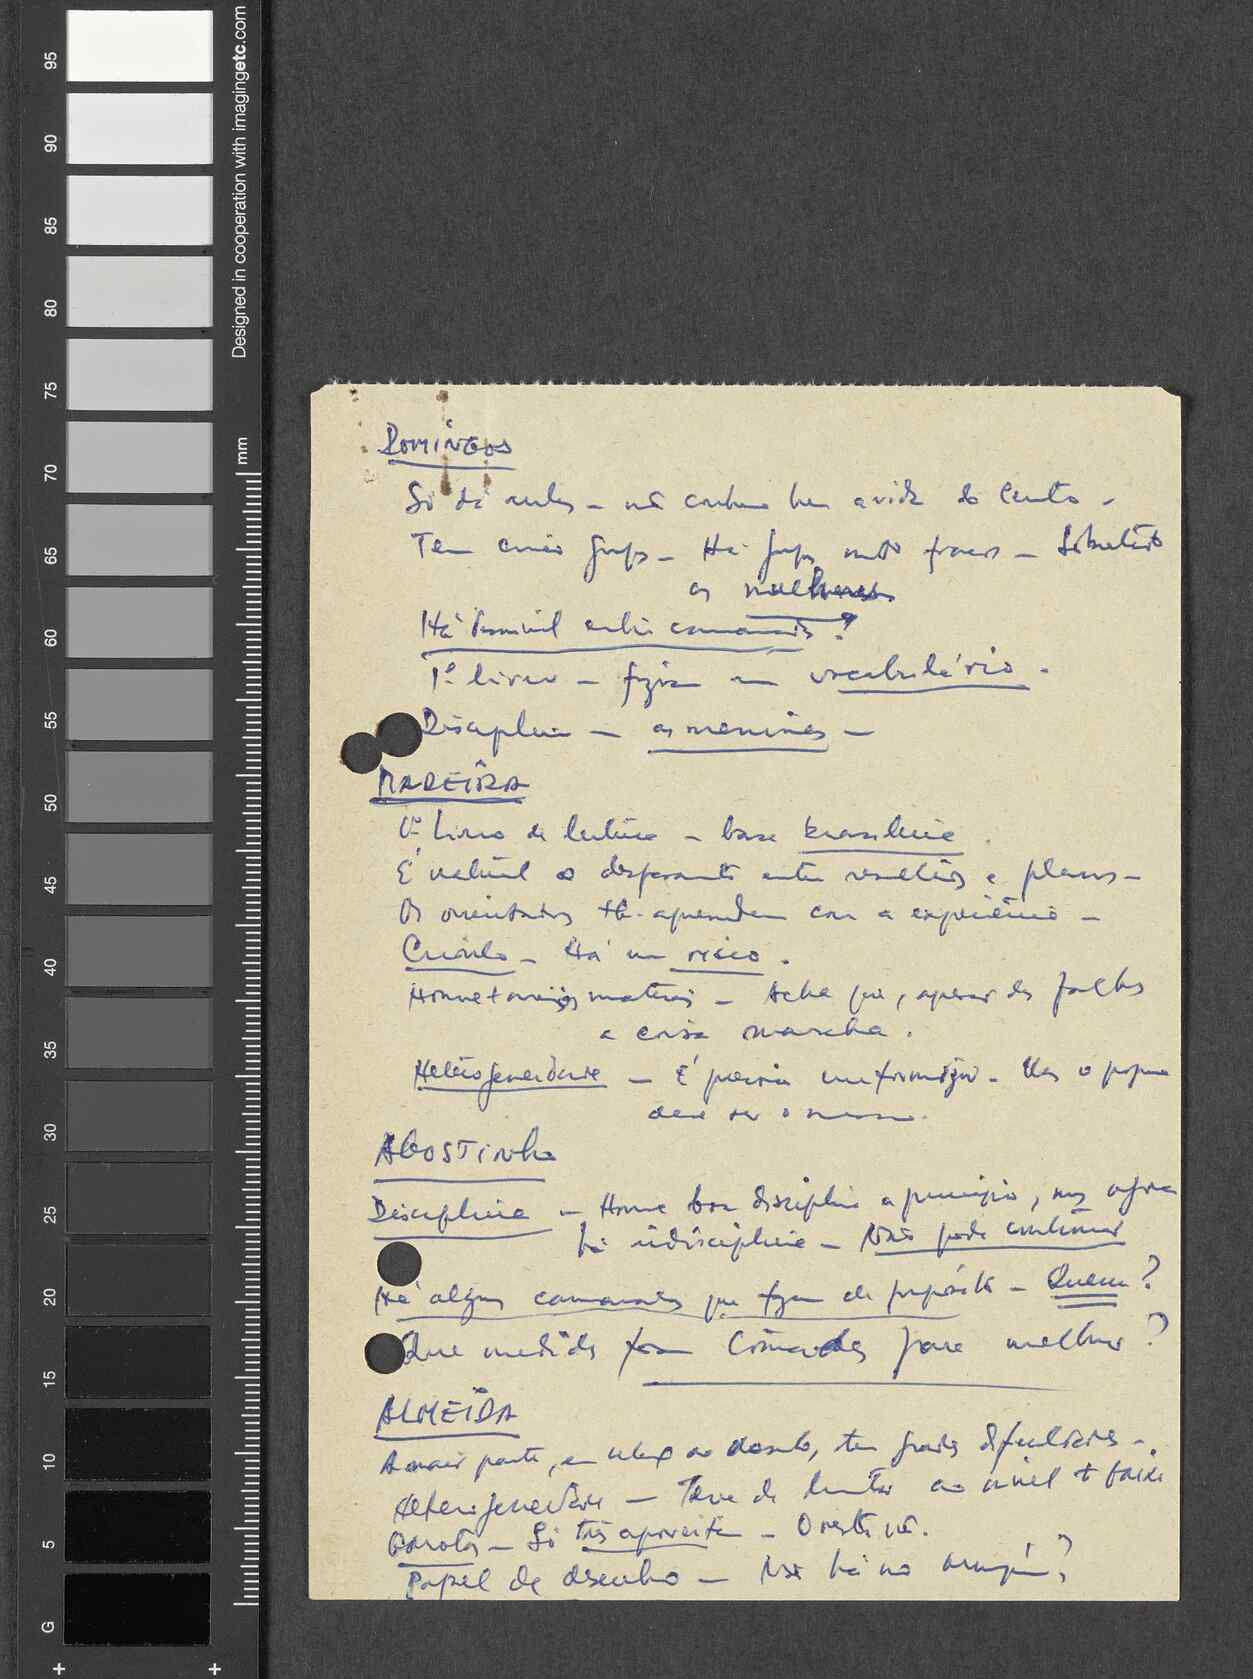 95
90
85
80
75
70
65
60
55
50
45
40
35
30
25
20
15
10
5
G
Designed in cooperation with imagingetc.com
mm
DOMINGOS
Só dá aulas – não conhece bem a vida do Centro –
Tem cinco grupos – Há grupos muito fracos – Sobretudo
as mulheres
Há entre camaradas?
1º livro – um vocabulário.
Disciplina – as meninas –
MADEIRA
1º Livro de leitura – base brasileira
É natural o entre e planos –
Os tb. aprendem com a experiência –
Crioulo – Há um risco.
Houve materiais – Acha que, apesar das falhas
a coisa marcha.
Heterogeneidade – É precisa uniformização. Mas o programa
deve ser o mesmo.
AGOSTINHO
Disciplina – Houve boa disciplina a princípio, mas agora
há indisciplina – Não pode continuar
Há alguns camaradas que fazem de propósito – Quem?
Que medidas foram tomadas para melhorar?
ALMEIDA
A maior parte, em relação ao desenho, tem grandes dificuldades –
Heterogeneidade – Teve de ao nível + baixo
Garotos – Só três aproveitam – O resto não.
Papel de desenho – Não há no armazém?